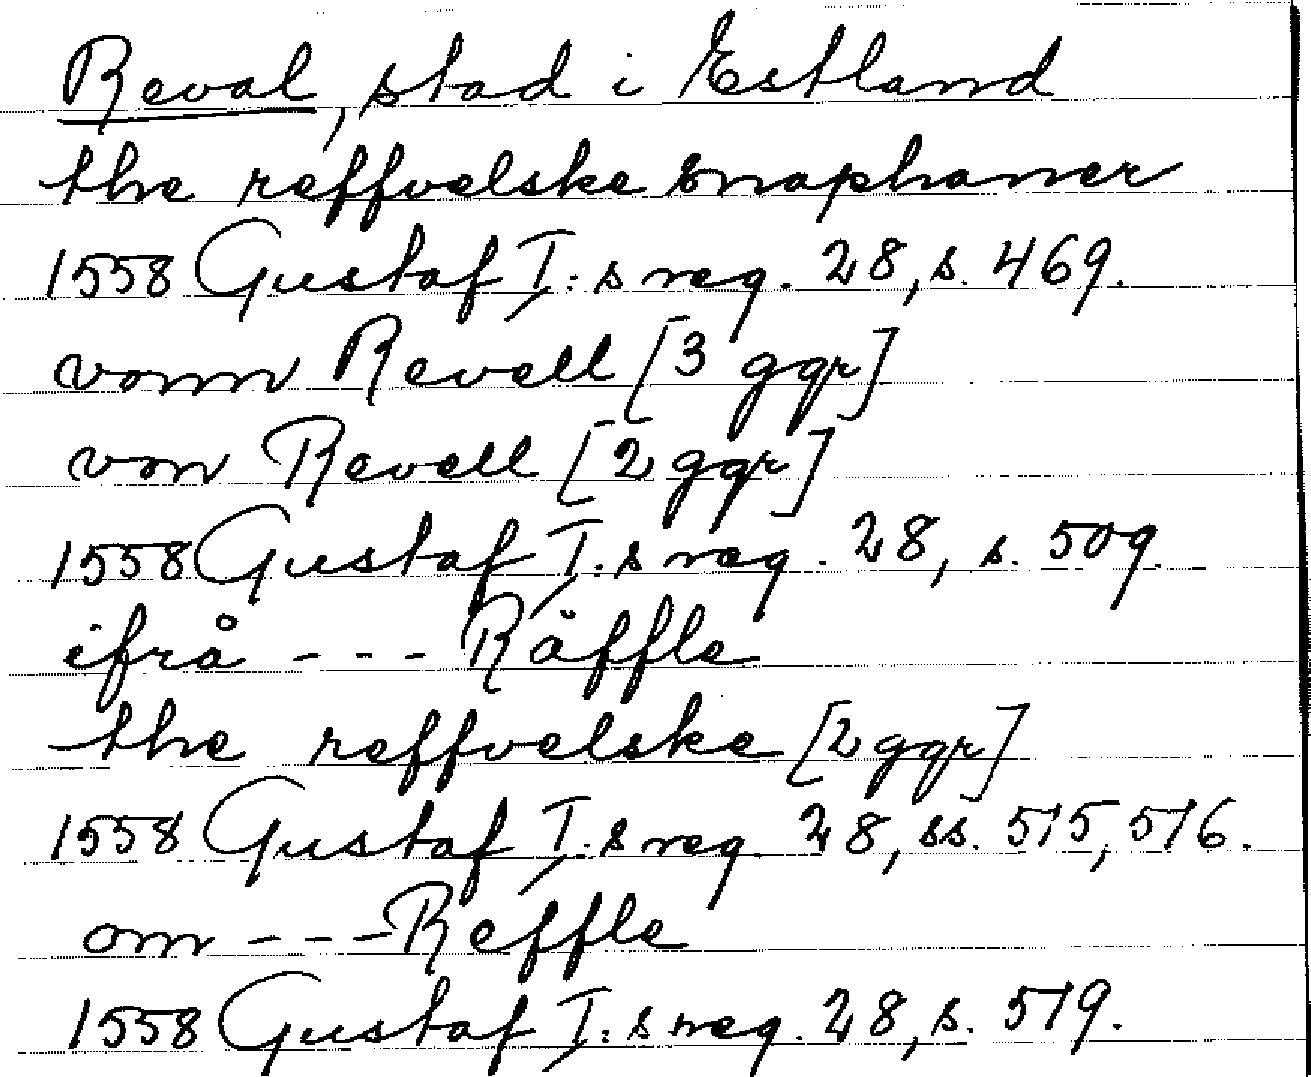 Reval, stad i Estland
the reffvelske knaphaner
1558 Gustaf I:s reg. 28, s. 469.
vonn Revell [3 ggr]
von Revell [2 ggr]
1558 Gustaf I:s reg. 28, s. 509.
ifrå --- Räffle
the reffvelske [2 ggr]
1558 Gustaf I:s reg. 28, ss. 515, 516.
om --- Reffle
1558 Gustaf I:s reg. 28, s. 519.